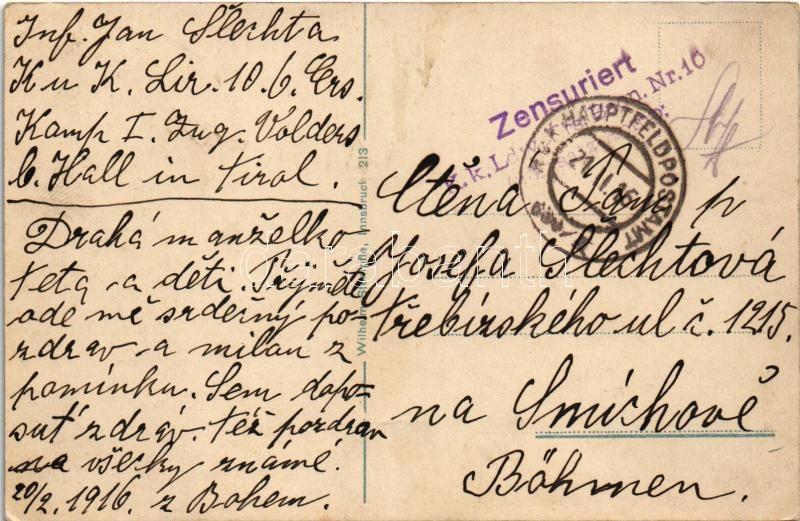 Inf. Jan Šlechta
K u K. Lir. 10. b. Ers.
Kamp I. Zug. Volders
b. Hall in Tirol.
Drahá manželko
teta a děti. Přijměte
ode mě srdečný po-
zdrav a milan z
pomínku. Sem dopo-
suť zdráv. též pozdrav
na všecky známé.
20/2. 1916. z Bohem.
Wilhelm Innsbruck 213
Zensuriert
Nr. 10
K.u.K. HAUPTFELDPOSTAMT
Ctěna Paní p
Josefa Šlechtová
třebízského ul č. 1215.
na Smíchově
Böhmen.
darabanth